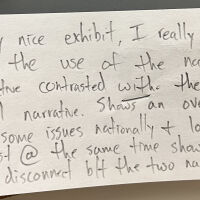 nice exhibit, I really
the use of the
contrasted with the
narrative. Shows an
some issues nationally +
@ the same time
disconnect b/t the two